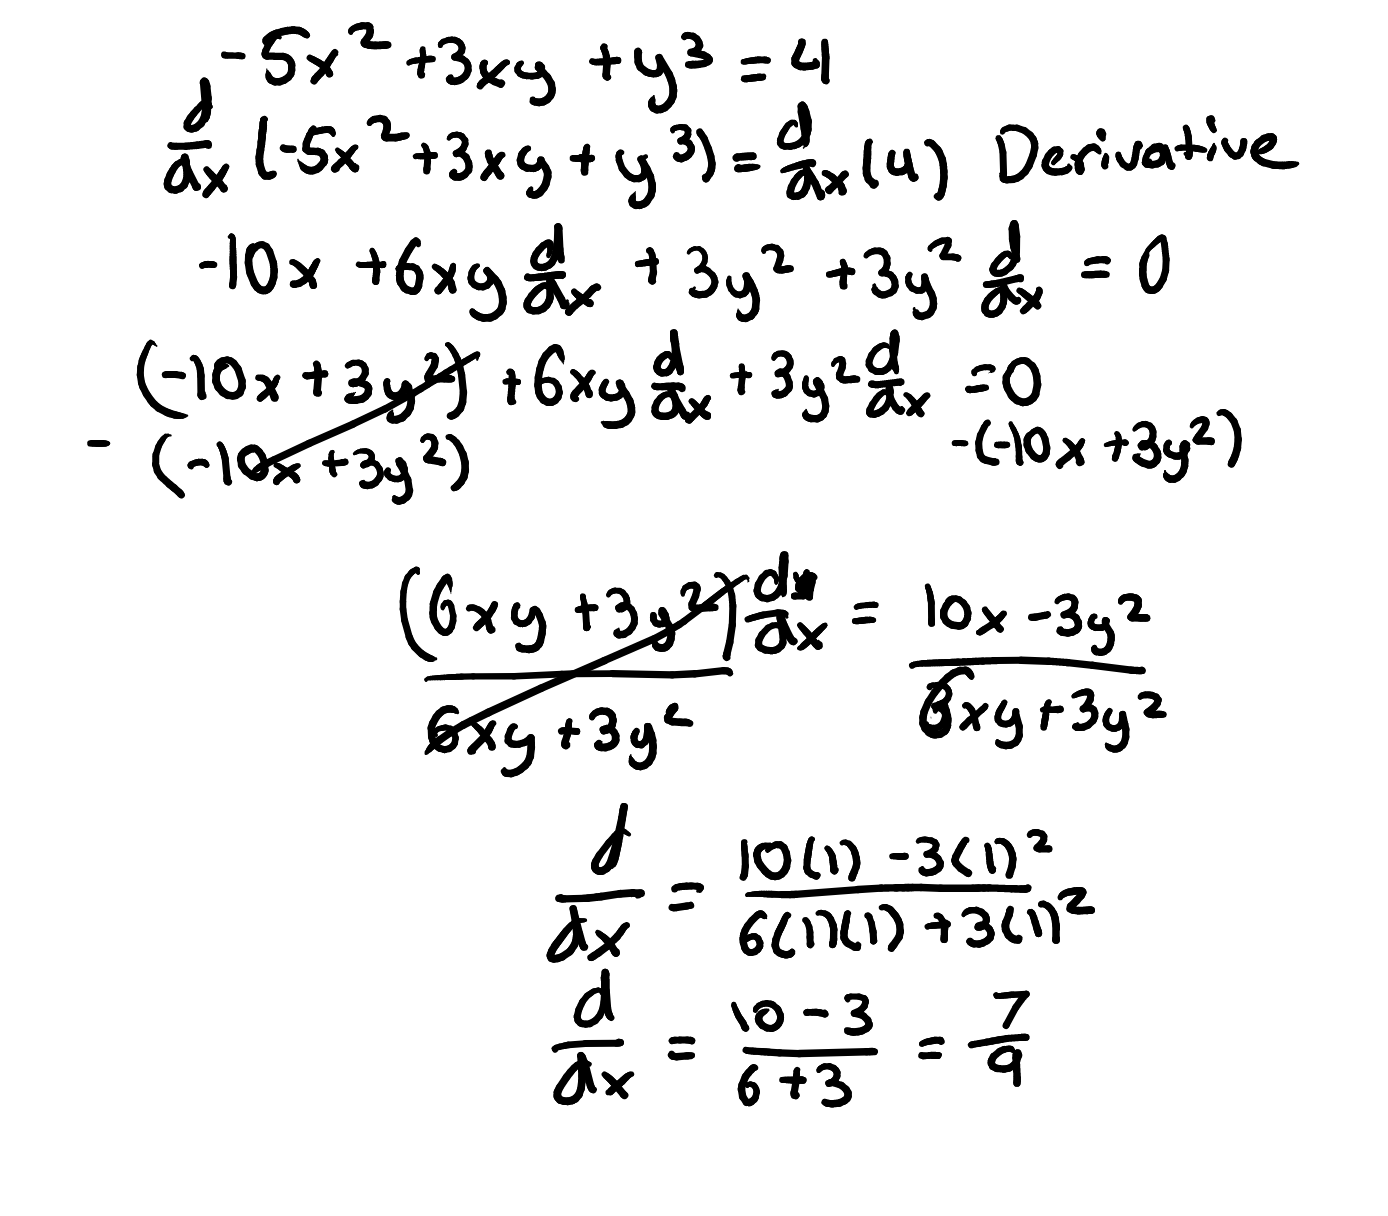 -5x² +3xy +y³ = 4
d/dx (-5x² +3xy + y³) = d/dx (4) Derivative
-10x +6xy d/dx + 3y² +3y² d/dx = 0
(-10x +3y²) +6xy d/dx + 3y² d/dx =0
- (-10x +3y²) -(-10x +3y²)
(6xy +3y²) d/dx / 6xy +3y² = 10x -3y² / 6xy +3y²
d/dx = 10(1) -3(1)² / 6(1)(1) +3(1)²
d/dx = 10-3 / 6+3 = 7/9